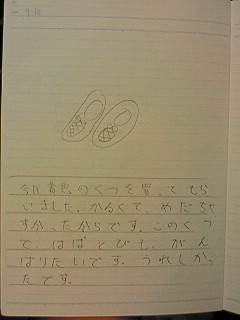 今日色のくつを買ってもら
いました。かるくて、めだちや
すかったからです。このくつ
で、はばとびも、がん
ばりたいです。うれしかっ
たです。